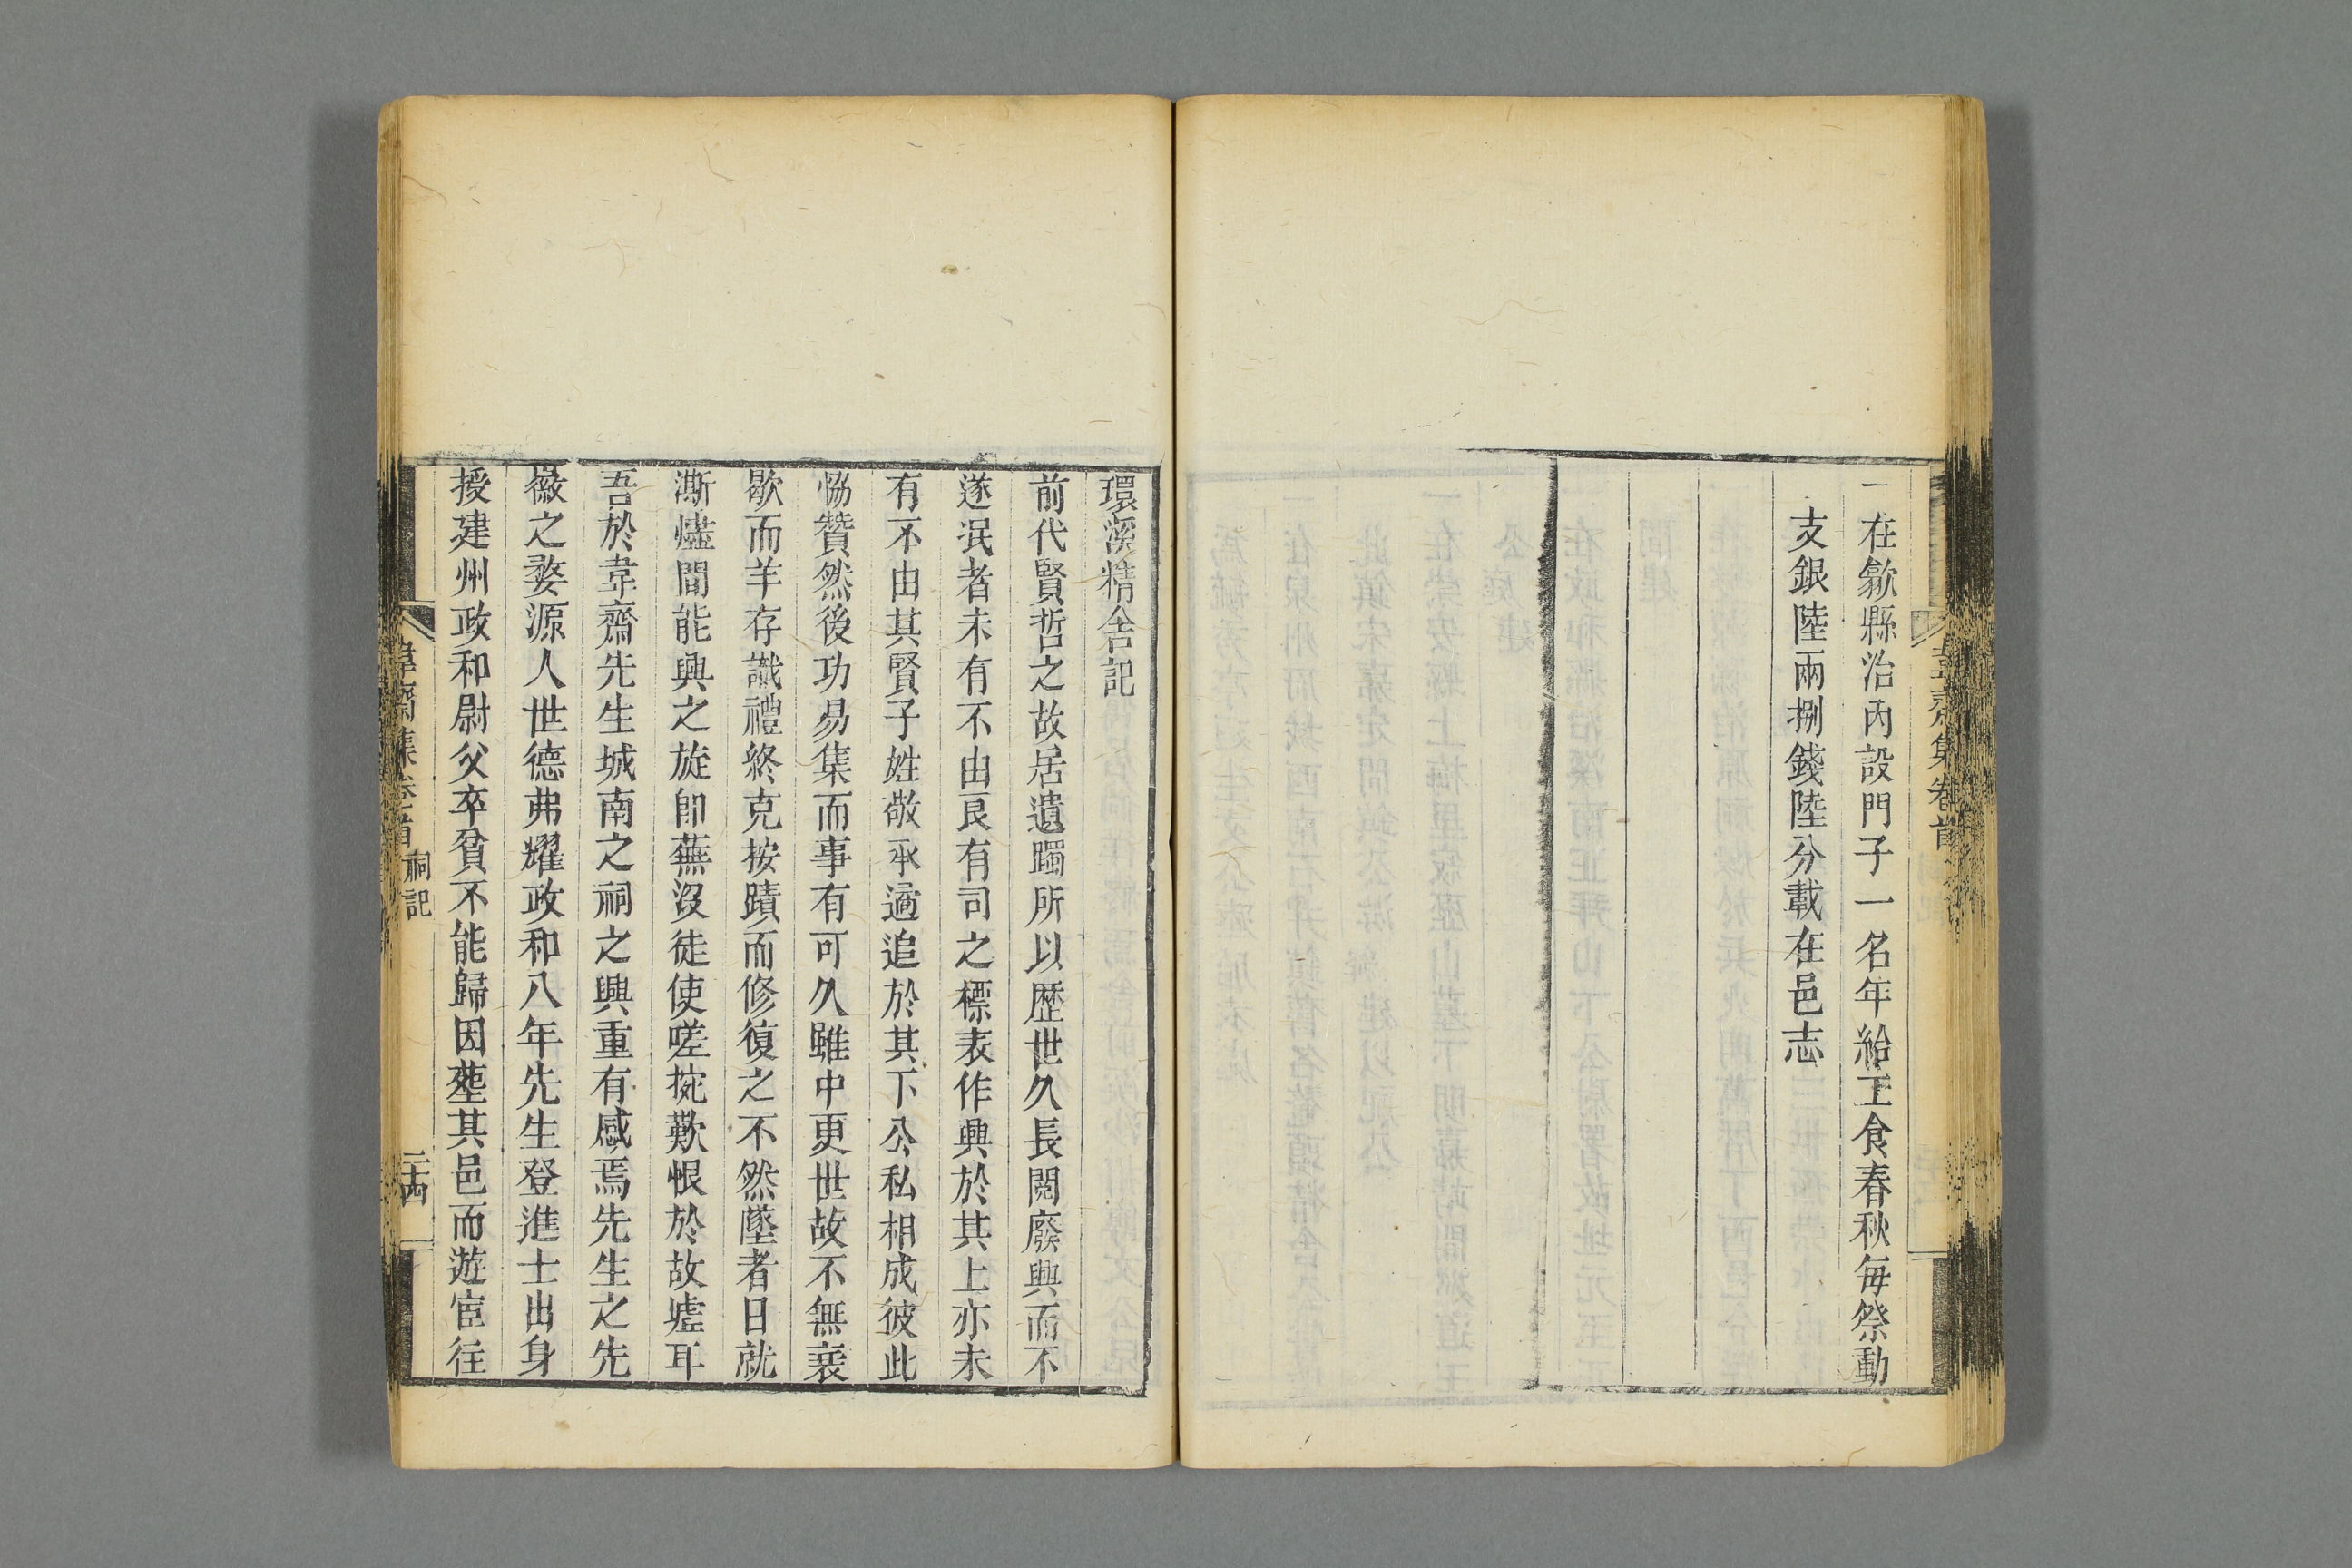 韋齋集卷首
一在歙縣治內設門子一名年給工食春秋每祭動
支銀陸兩捌錢陸分載在邑志
環溪精舍記
前代賢哲之故居遺躅所以歷世久長閱廢興而不
遂泯者未有不由良有司之標表作興於其上亦未
有不由其賢子姓敬承遹追於其下公私相成彼此
恊贊然後功易集而事有可久雖中更世故不無衰
歇而羊存識禮終克按蹟而修復之不然墜者日就
澌燼間能興之旋卽蕪沒徒使嗟捥歎恨於故墟耳
吾於韋齋先生城南之祠之興重有感焉先生之先
徽之婺源人世德弗耀政和八年先生登進士出身
授建州政和尉父卒貧不能歸因塟其邑而遊宦往
韋齋集卷首 祠記 二十四